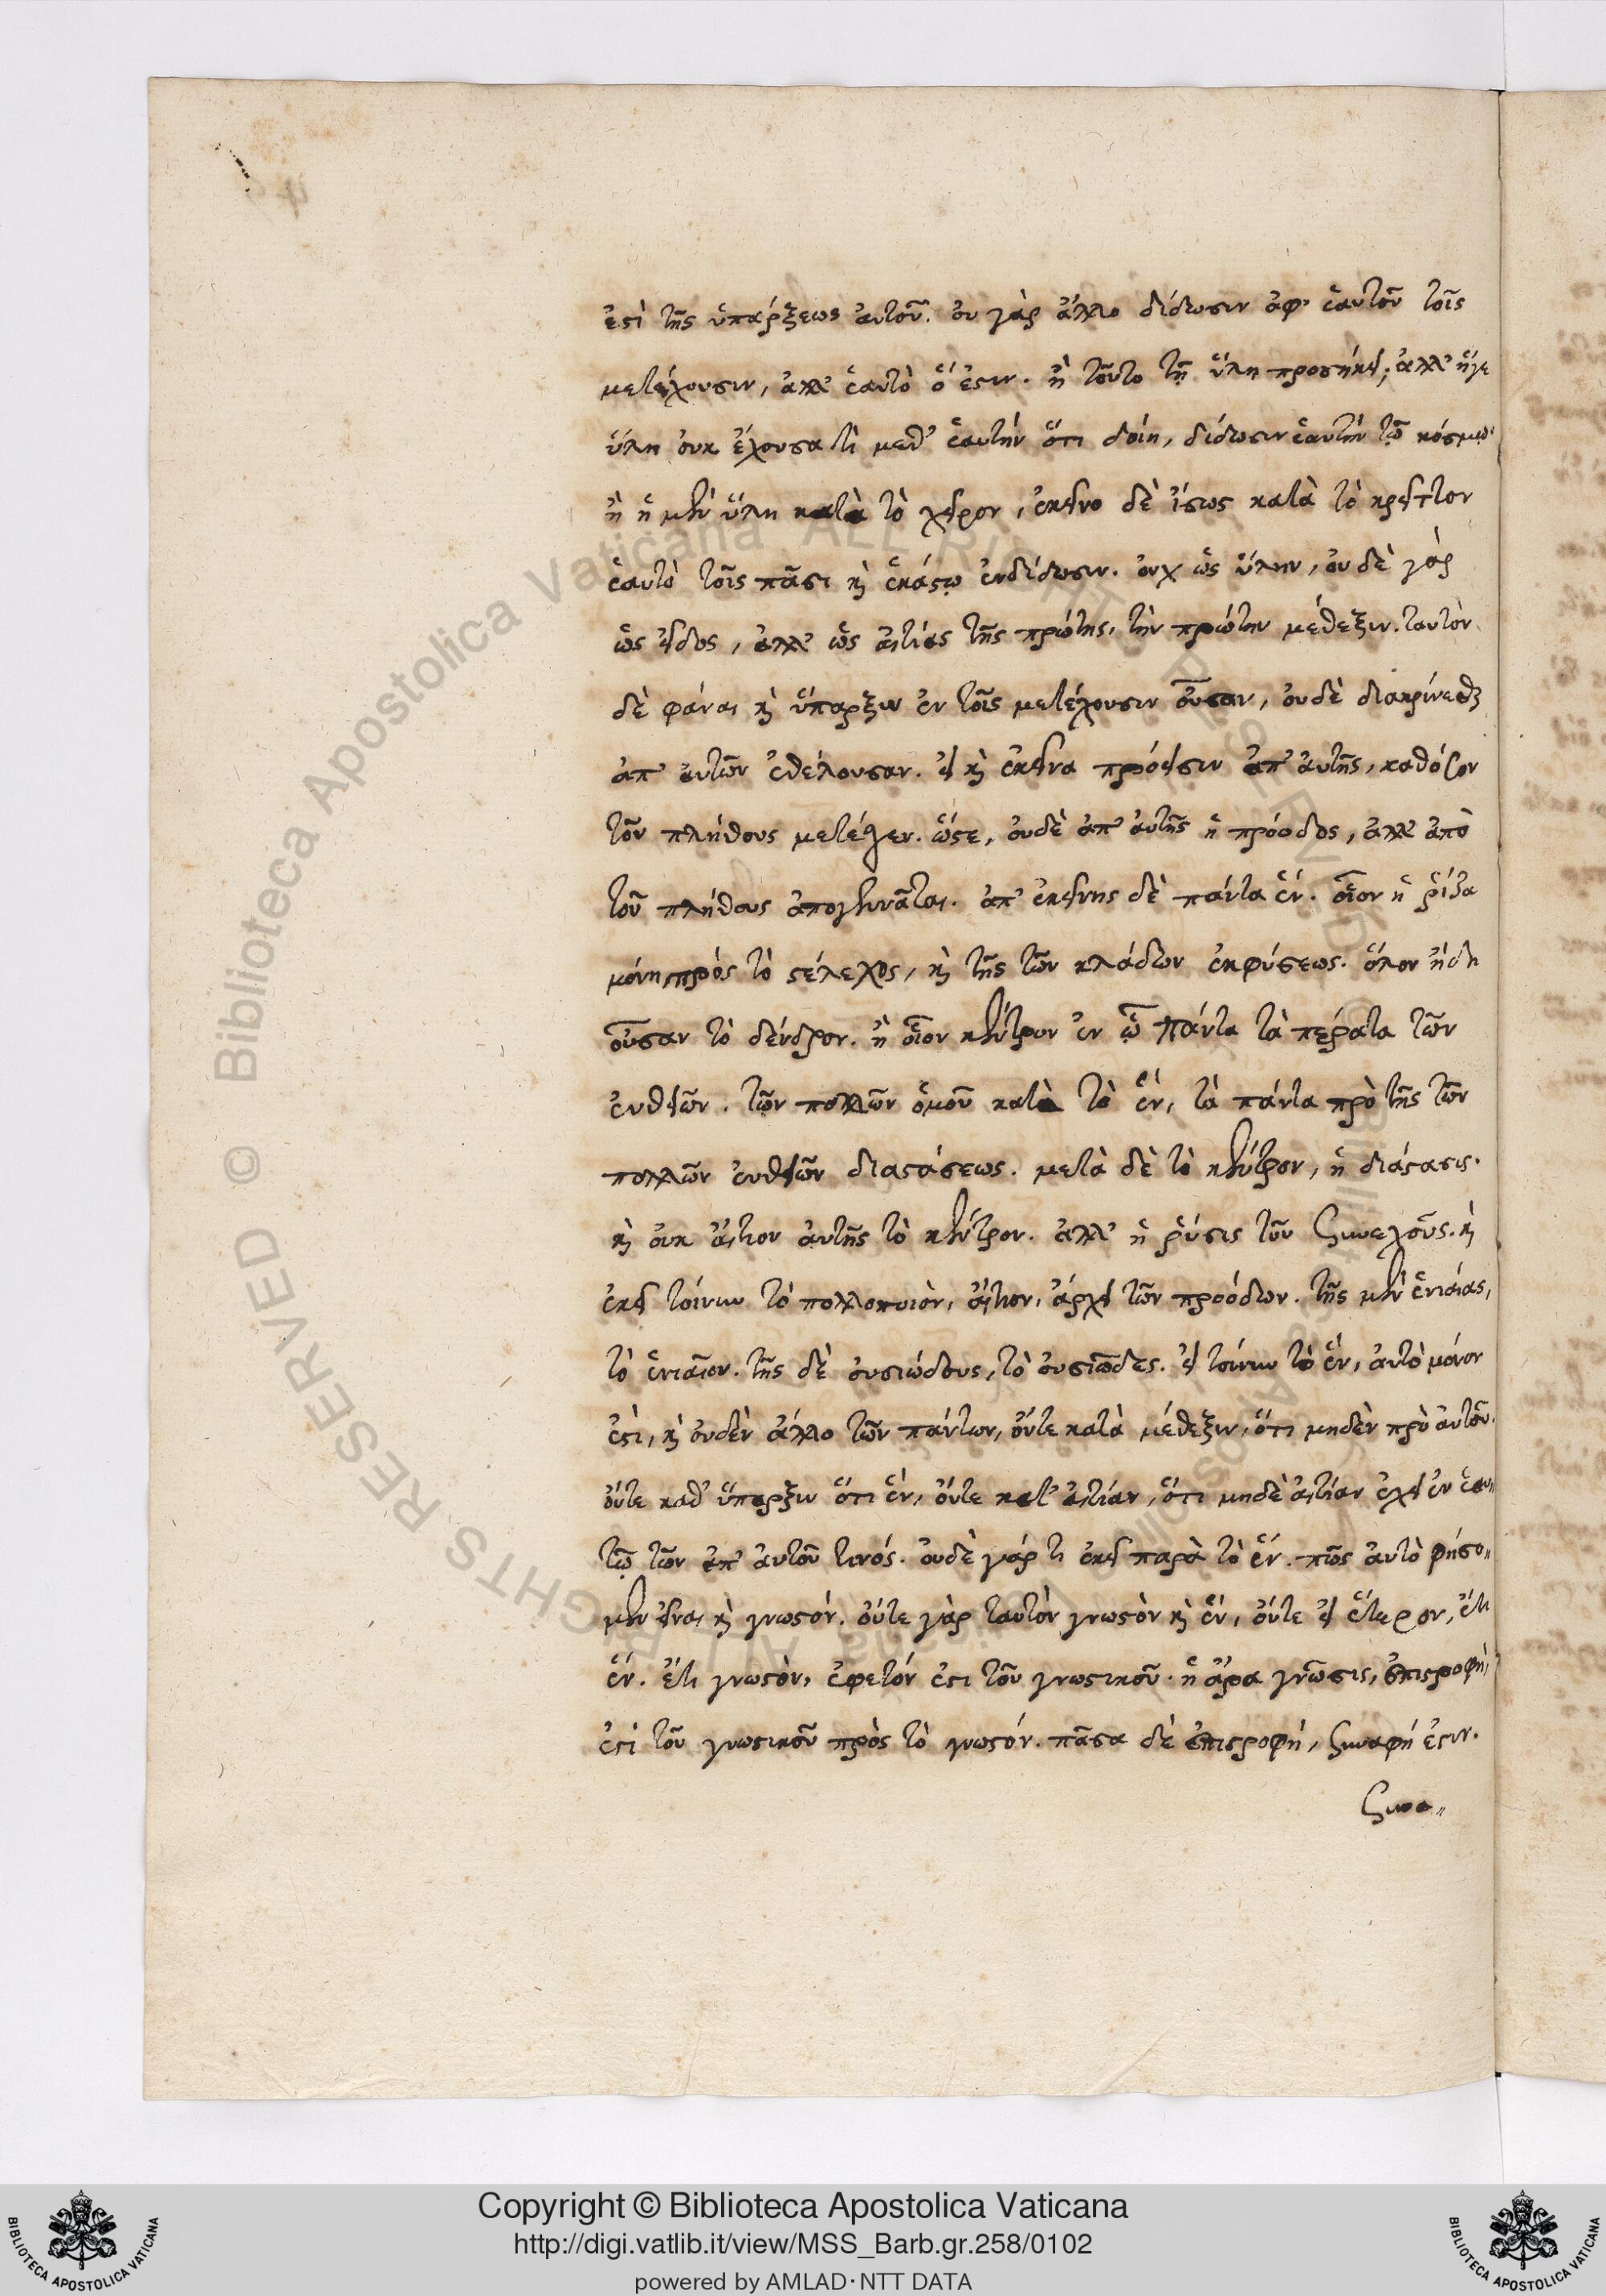 ἐστὶ τῆς ὑπάρξεως αὐτοῦ. οὐ γὰρ ἄλλο δίδωσιν ἀφ' ἑαυτοῦ τοῖς
μετέχουσιν, ἀλλ' ἑαυτὸ ὅ ἐστιν. ἢ τοῦτο τῇ ὕλῃ προσήκει; ἀλλ' ἥγε
ὕλη οὐκ ἔχουσα τὶ μεθ' ἑαυτὴν ὅτι δοίη, δίδωσιν ἑαυτὴν τῷ κόσμῳ.
ἢ ἡ μὲν ὕλη κατὰ τὸ χεῖρον, ἐκεῖνο δὲ ἴσως κατὰ τὸ κρεῖττον
ἑαυτὸ τοῖς πᾶσι καὶ ἑκάστῳ ἐνδίδωσιν. οὐχ ὡς ὕλην, οὐδὲ γὰρ
ὡς εἶδος, ἀλλ' ὡς αἰτίας τῆς πρώτης, τὴν πρώτην μέθεξιν. ταυτὸν
δὲ φάναι καὶ ὕπαρξιν ἐν τοῖς μετέχουσιν οὖσαν, οὐδὲ διακρίνεσθαι
ἀπ' αὐτῶν ἐθέλουσαν. εἰ καὶ ἐκεῖνα πρόεισιν ἀπ' αὐτῆς, καθόσον
τοῦ πλήθους μετέσχεν. ὥστε, οὐδὲ ἀπ' αὐτῆς ἡ πρόοδος, ἀλλ' ἀπὸ
τοῦ πλήθους ἀπογεννᾶται. ἀπ' ἐκείνης δὲ πάντα ἕν. οἷον ἡ ῥίζα
μόνη πρὸς τὸ στέλεχος, καὶ τῆς τῶν κλάδων ἐκφύσεως. ὅλον ἤδη
οὖσαν τὸ δένδρον. ἢ οἷον κέντρον ἐν ᾧ πάντα τὰ πέρατα τῶν
εὐθειῶν. τῶν πολλῶν ὁμοῦ κατὰ τὸ ἕν, τὰ πάντα πρὸ τῆς τῶν
πολλῶν εὐθειῶν διαστάσεως. μετὰ δὲ τὸ κέντρον, ἡ διάστασις.
καὶ οὐκ αἴτιον αὐτῆς τὸ κέντρον. ἀλλ' ἡ ῥύσις τοῦ συνεχοῦς. καὶ
ἐκεῖ τοίνυν τὸ πολλοποιὸν, αἴτιον, ἄρχει τῶν προόδων. τῆς μὲν ἑνιαίας,
τὸ ἑνιαῖον. τῆς δὲ οὐσιώδους, τὸ οὐσιῶδες. εἰ τοίνυν τὸ ἕν, αὐτὸ μόνον
ἐστὶ, καὶ οὐδὲν ἄλλο τῶν πάντων, οὔτε κατὰ μέθεξιν, ὅτι μηδὲν πρὸ αὐτοῦ.
οὔτε καθ' ὕπαρξιν ὅτι ἕν, οὔτε κατ' αἰτίαν, ὅτι μηδὲ αἰτίαν ἔχει ἐν ἑαυ
τῷ τῶν ἀπ' αὐτοῦ τινός. οὐδὲ γάρ τι ἐκεῖ παρὰ τὸ ἕν. πῶς αὐτὸ φήσο〃
μεν εἶναι καὶ γνωστόν. οὔτε γὰρ ταυτὸν γνωστὸν καὶ ἕν, οὔτε εἰ ἕτερον, ἔτι
ἕν. ἔτι γνωστὸν, ἐφετόν ἐστι τοῦ γνωστικοῦ. ἡ ἄρα γνῶσις, ἐπιστροφή
ἐστὶ τοῦ γνωστικοῦ πρὸς τὸ γνωστόν. πᾶσα δὲ ἐπιστροφή, συναφή ἐστιν.
συνα〃
Copyright © Biblioteca Apostolica Vaticana
http://digi.vatlib.it/view/MSS_Barb.gr.258/0102
powered by AMLAD·NTT DATA